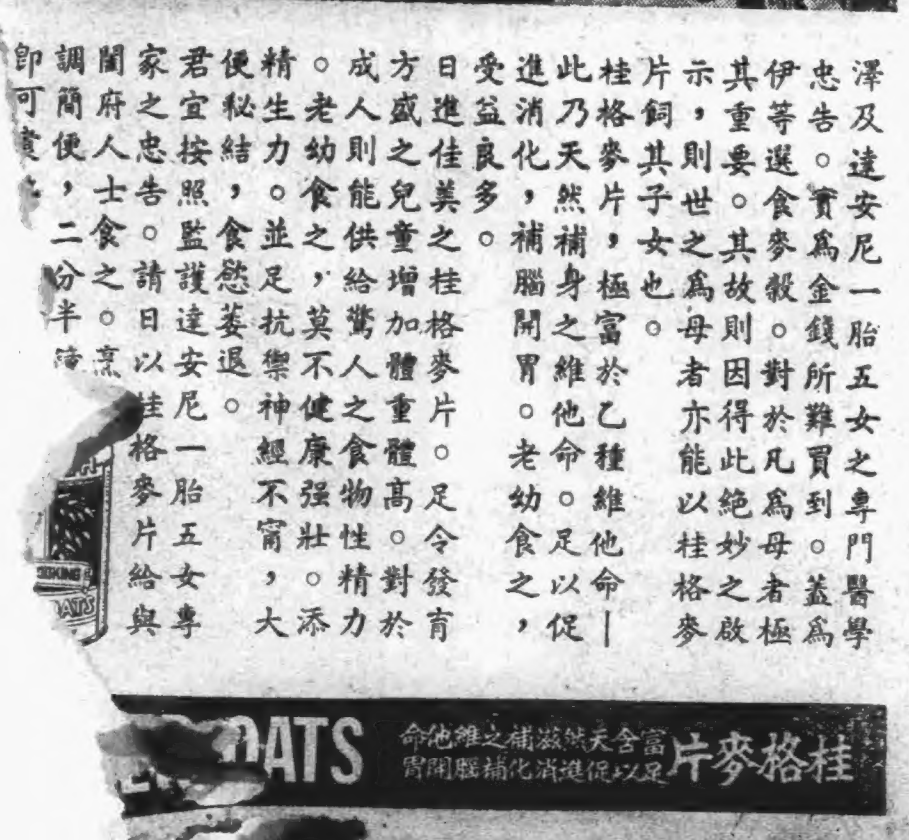 澤及達安尼一胎五女之專門醫學
忠告。實爲金錢所難買到。蓋爲
伊等選食麥穀。對於凡爲母者極
其重要。其故則因得此絕妙之啟
示,則世之爲母者亦能以桂格麥
片飼其子女也。
桂格麥片,極富於乙種維他命—
此乃天然補身之維他命。足以促
進消化,補腦開胃。老幼食之,
受益良多。
日進佳美之桂格麥片。足令發育
方盛之兒童增加體重體高。對於
成人則能供給驚人之食物性精力
。老幼食之,莫不健康强壯。添
精生力。並足抗禦神經不甯,大
便秘結,食慾萎退。
君宜按照監護達安尼一胎五女專
家之忠告。請日以桂格麥片給與
闔府人士食之。烹
調簡便,二分半
卽可
COOKING
OATS
OATS
富含天然滋補之維他命
足以促進消化補腦開胃
桂格麥片